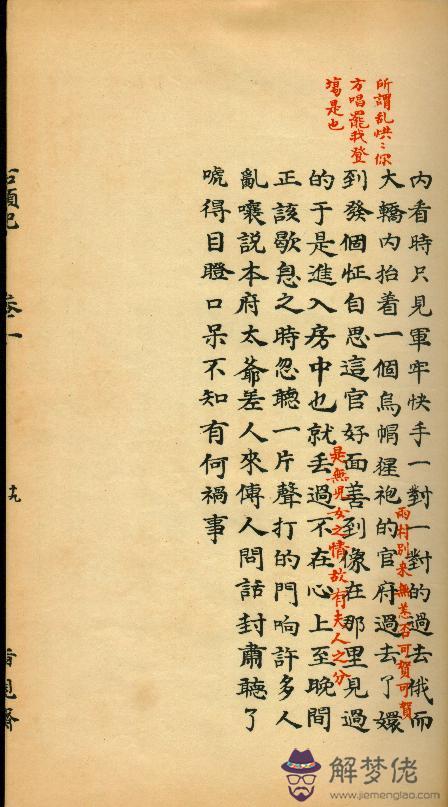 所謂乱烘〻你
方唱罷我登
塲是也
內看時只見軍牢快手一對一對的過去俄而
大轎內抬着一個烏帽猩袍的官府過去了嬛
雨村別來無恙否可賀可賀
到發個怔自思這官好面善到像在那里見過
是無児女之情故有夫人之分
的于是進入房中也就丢過不在心上至晚間
正該歇息之時忽聽一片聲打的門响許多人
亂嚷説本府太爺差人來傳人問話封肅聽了
唬得目瞪口呆不知有何禍事
解梦佬
www.jiemenglao.com